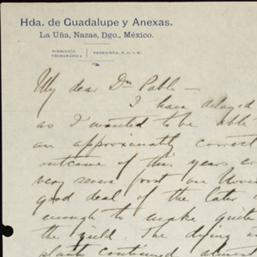 Hda. de Guadalupe y Anexas.
La Uña, Nazas, Dgo., México.
DIRECCIÓN
TELEGRÁFICA
My dear Dn Pablo —
I have delayed
as I wanted to be able
an approximately correct
outcome of this years
very severe frost on
good deal of the later
enough to make quite
the yield. The dying
plants continued almost